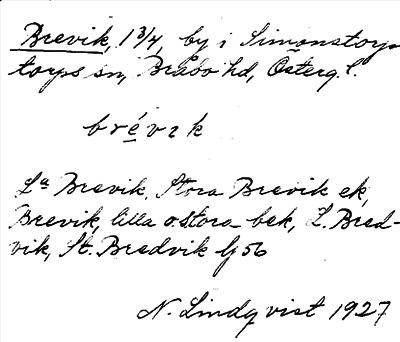 Brevik, 1 3/4, by i Simonstorps
torps sn, Bråbo hd, Österg. l.
brévɪk
La Brevik, Stora Brevik ek,
Brevik, lilla o stora bek, L. Bred-
vik, St. Bredvik Gj 56
N. Lindqvist 1927